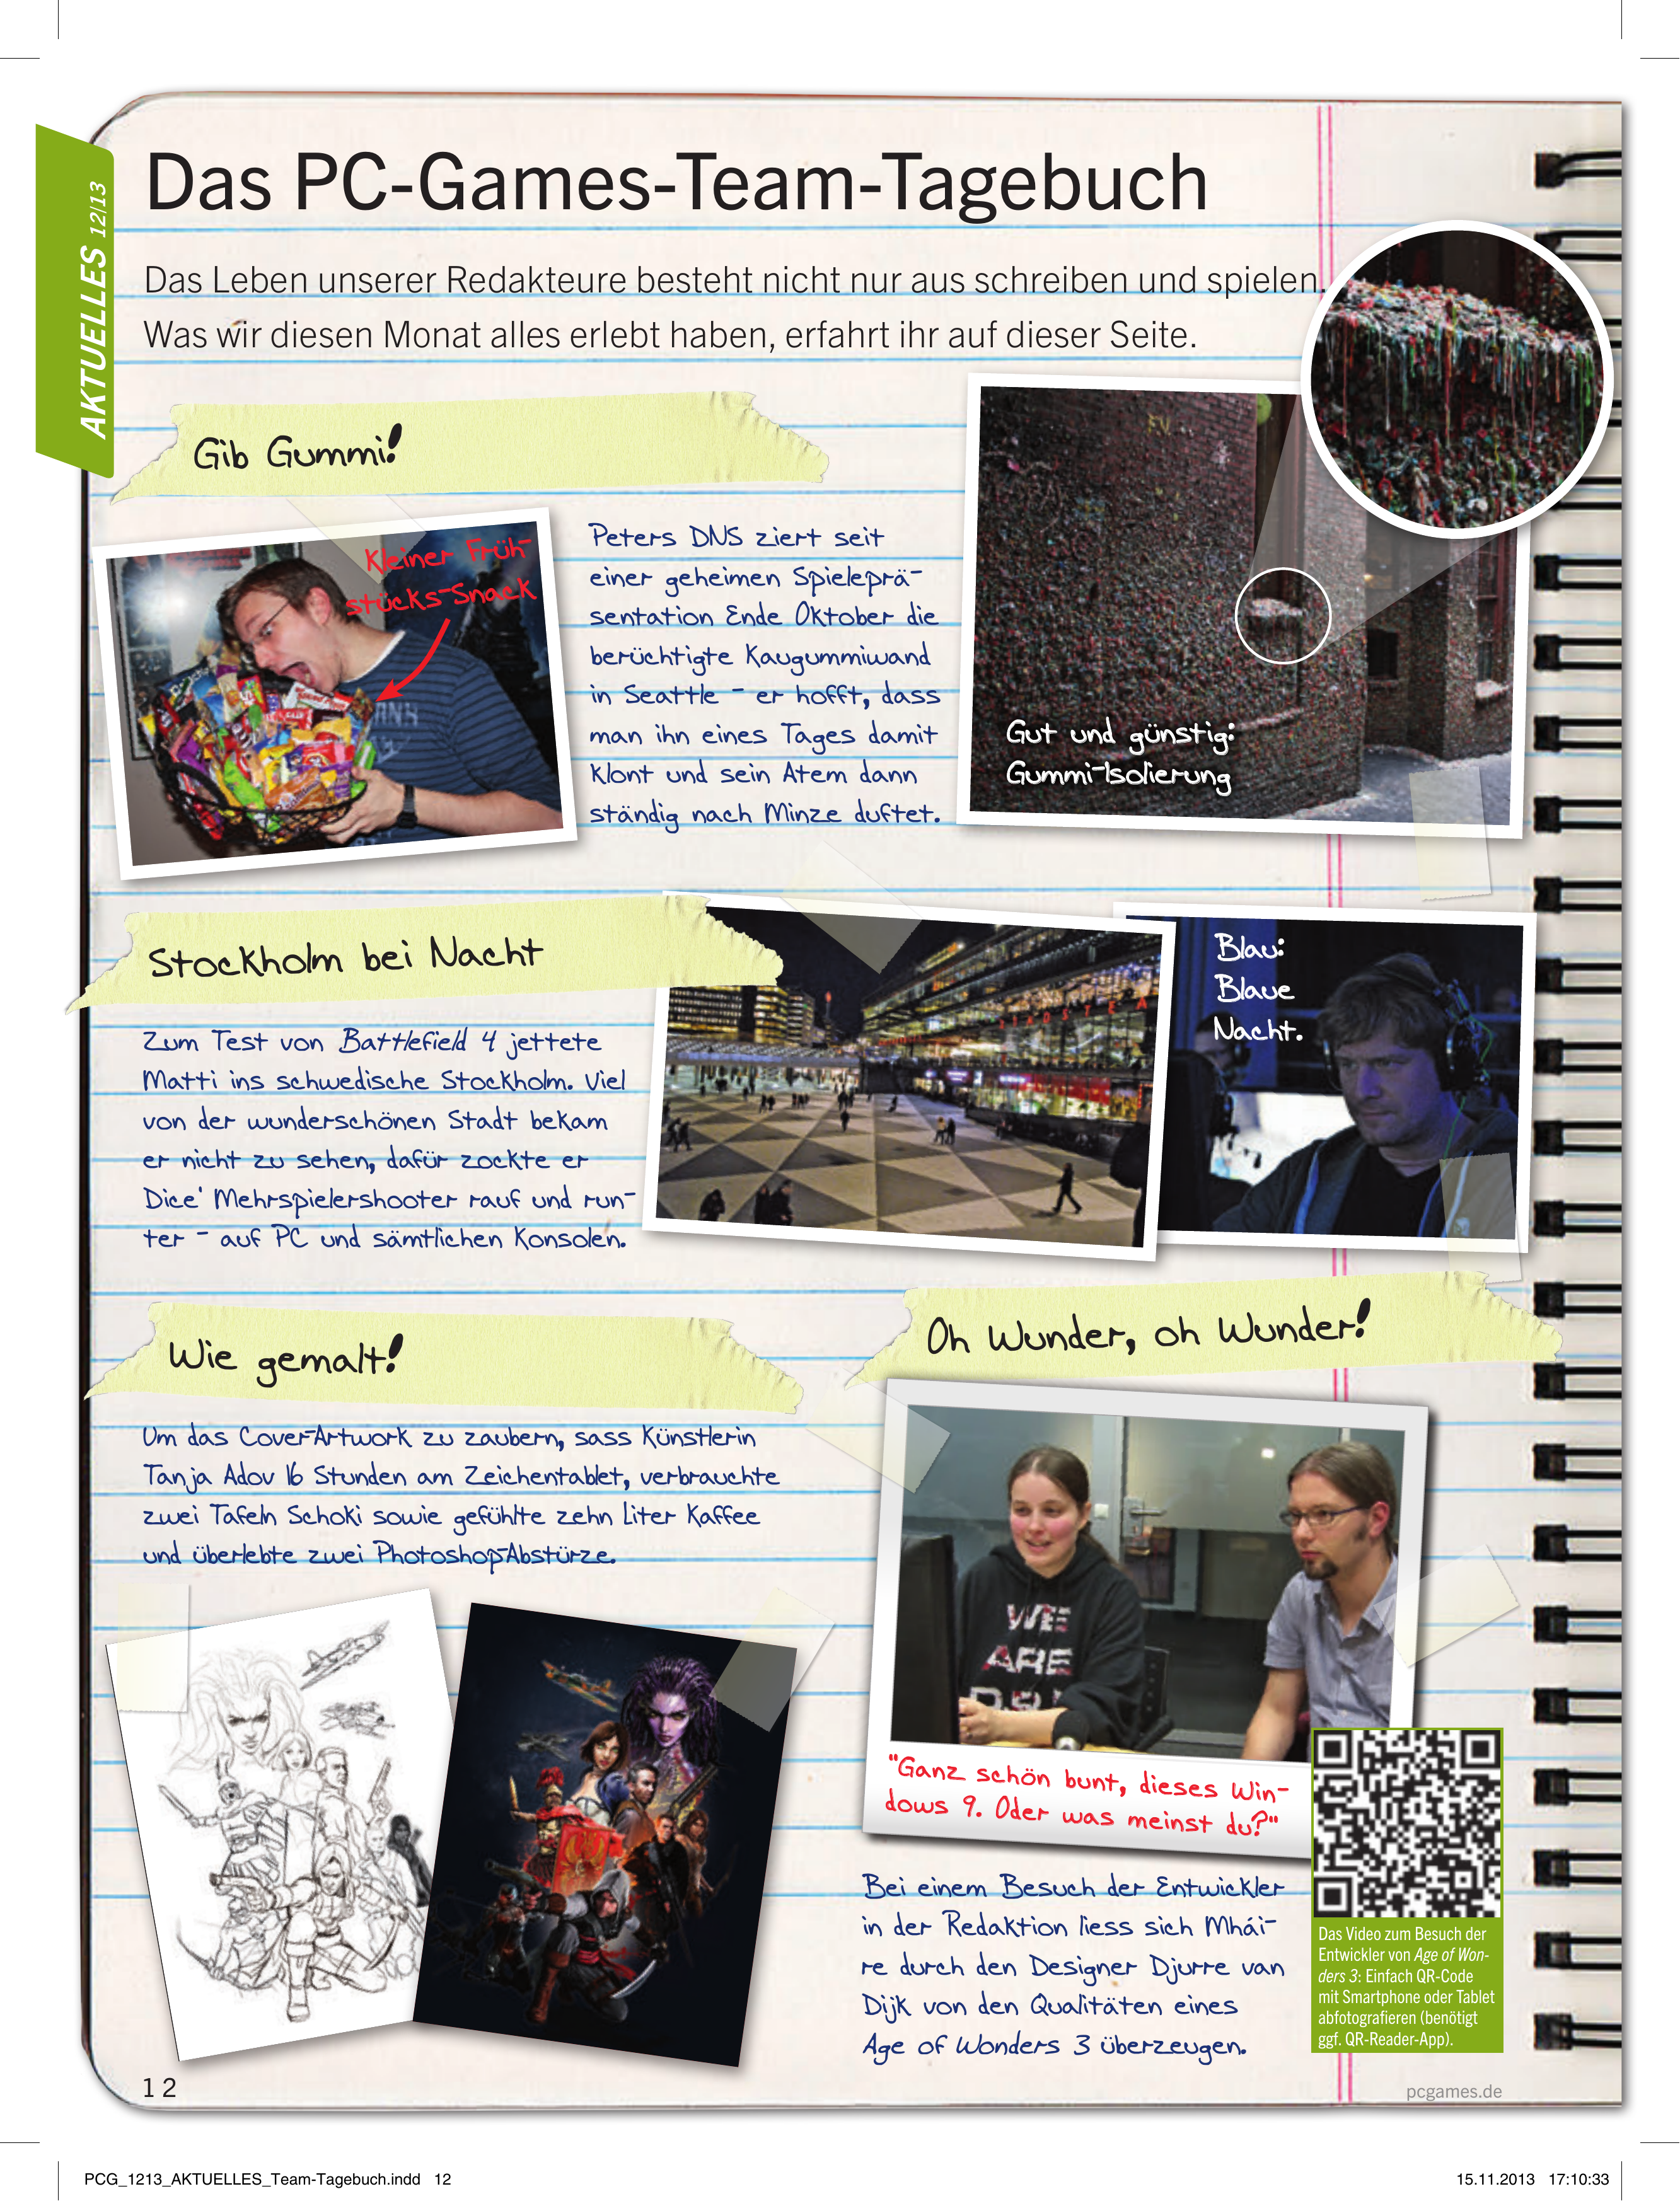 AKTUELLES 12/13
Das PC-Games-Team-Tagebuch
Das Leben unserer Redakteure besteht nicht nur aus schreiben und spielen.
Was wir diesen Monat alles erlebt haben, erfahrt ihr auf dieser Seite.
Gib Gummi!
Kleiner Früh-
stücks-Snack
Peters DNS ziert seit
einer geheimen Spieleprä-
sentation Ende Oktober die
berüchtigte Kaugummiwand
in Seattle - er hofft, dass
man ihn eines Tages damit
klont und sein Atem dann
ständig nach Minze duftet.
Gut und günstig:
Gummi-Isolierung
Stockholm bei Nacht
Zum Test von Battlefield 4 jettete
Matti ins schwedische Stockholm. Viel
von der wunderschönen Stadt bekam
er nicht zu sehen, dafür zockte er
Dice' Mehrspielershooter rauf und run-
ter - auf PC und sämtlichen Konsolen.
Blau:
Blaue
Nacht.
Wie gemalt!
Um das Cover-Artwork zu zaubern, sass Künstlerin
Tanja Adov 16 Stunden am Zeichentablet, verbrauchte
zwei Tafeln Schoki sowie gefühlte zehn Liter Kaffee
und überlebte zwei Photoshop-Abstürze.
Oh Wunder, oh Wunder!
WE
ARE
"Ganz schön bunt, dieses Win-
dows 9. Oder was meinst du?"
Bei einem Besuch der Entwickler
in der Redaktion liess sich Mhái-
re durch den Designer Djurre van
Dijk von den Qualitäten eines
Age of Wonders 3 überzeugen.
Das Video zum Besuch der
Entwickler von Age of Won-
ders 3: Einfach QR-Code
mit Smartphone oder Tablet
abfotografieren (benötigt
ggf. QR-Reader-App).
12
pcgames.de
PCG_1213_AKTUELLES_Team-Tagebuch.indd 12
15.11.2013 17:10:33